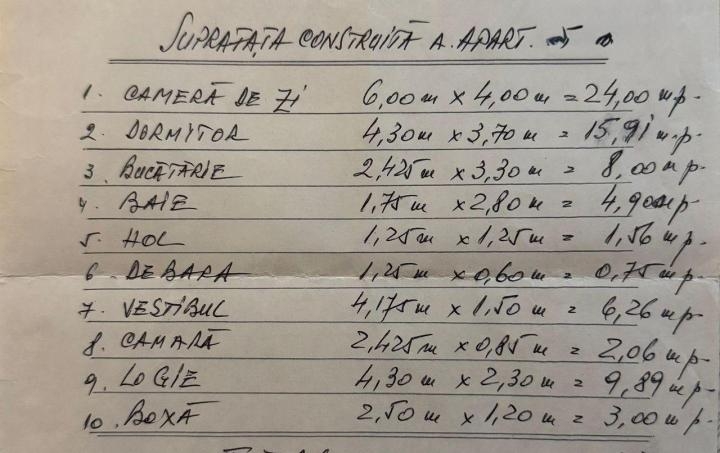 SUPRAFAȚA CONSTRUITĂ A. APART. 5
1. CAMERĂ DE ZI 6,00m x 4,00m = 24,00mp.
2. DORMITOR 4,30m x 3,70m = 15,91m.p.
3. BUCĂTĂRIE 2,425m x 3,30m = 8,00mp.
4. BAIE 1,75m x 2,80m = 4,90mp.
5. HOL 1,25m x 1,25m = 1,56 mp.
6. DEBARA 1,25m x 0,60m = 0,75mp.
7. VESTIBUL 4,175m x 1,50m = 6,26mp.
8. CAMARĂ 2,425m x 0,85m = 2,06mp.
9. LOGIE 4,30m x 2,30m = 9,89mp.
10. BOXĂ 2,50m x 1,20m = 3,00mp.